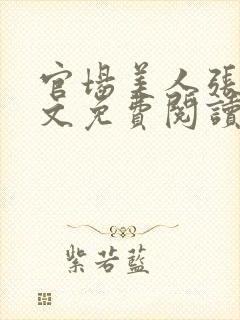 官場美人張
文免費閱讀
紫若藍